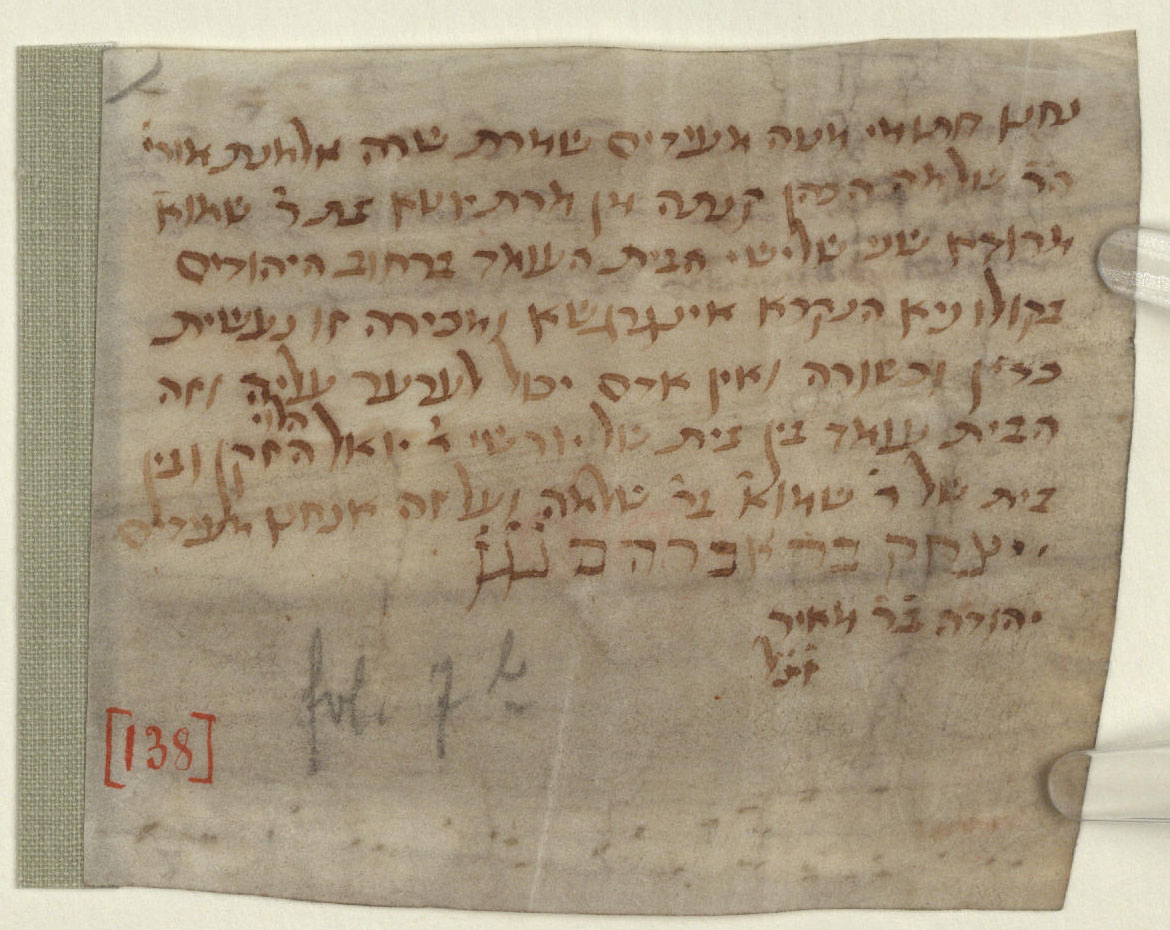 נחנו חתומי מטה מעידים שמרת שרה אלמנת מורי
הר׳ שלמה הכהן קנתה מן מרת יוטא בת ר׳ שמוא׳
שני שלישי הבית העומד ברחוב היהודים
בקולוניא הנקרא ומכירה זו נעשית
כדין וכשורה ואין אדם יכול לערער עליה וזה
הלוי
הבית עומד בין בית של יורשי ר׳ יואל הזקן ובין
בית של ר׳ שמוא׳ בר׳ שלמה ועל זה אנחנו מעידים
יצחק בר אברהם
יהודה בר׳ מאיר
זצ״ל
fol. 7 b
[138]